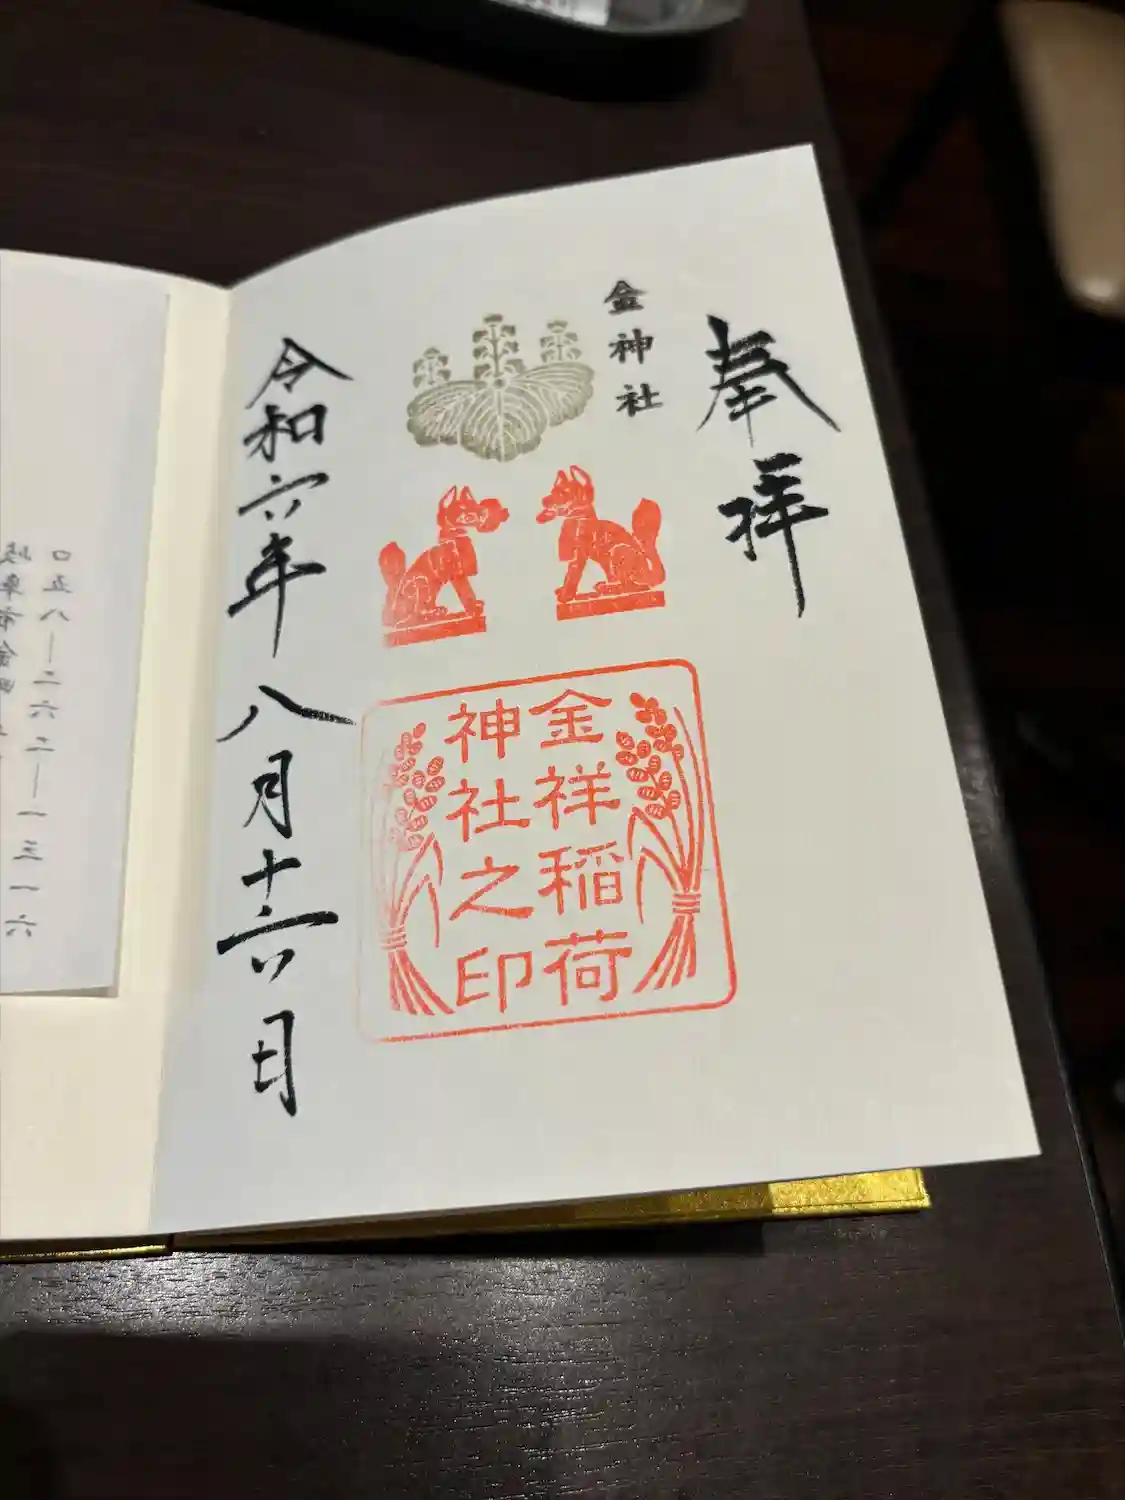 奉拝
金神社
金祥稲荷
神社之印
令和六年八月十六日
〇五八―二六二―一三一六
岐阜市金町